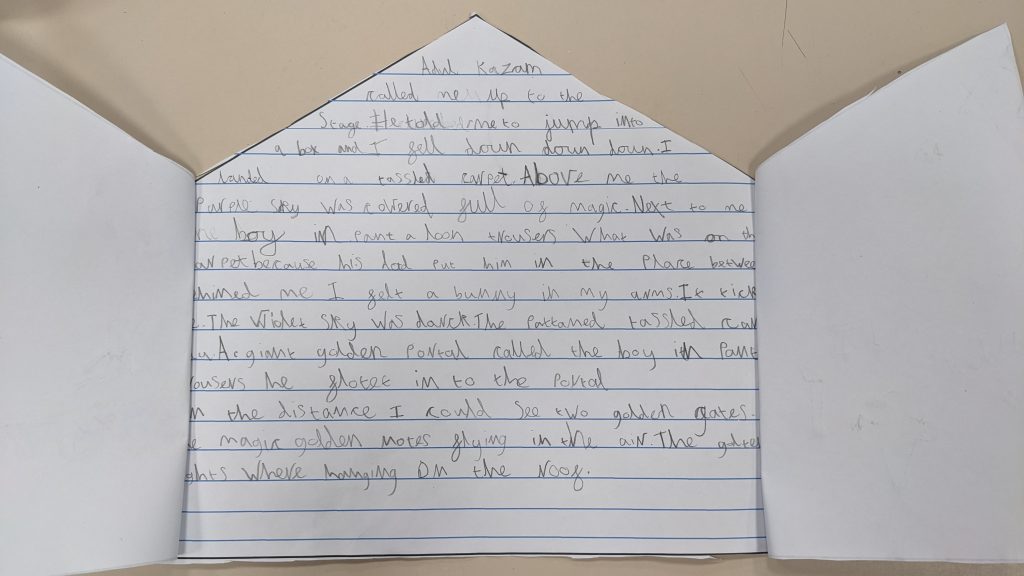 Adul Kazam
called me up to the
Stage. He told me to jump into
a box and I fell down down down. I
landed on a tassled carpet. Above me the
Purple sky was covered full of magic. Next to me
boy in Pant a loon trousers What was on th
arpet because his dad put him in the Place betwee
hined me I felt a bunny in my arms. It tick
The Violet sky was darck. The Pattaned tassled car
A giant golden Portal called the boy in Pant
rousers he flotet in to the Portal
n the distance I could see two golden gates.
e magic golden notes flying in the air. The golden
ghts Where hanging on the roof.